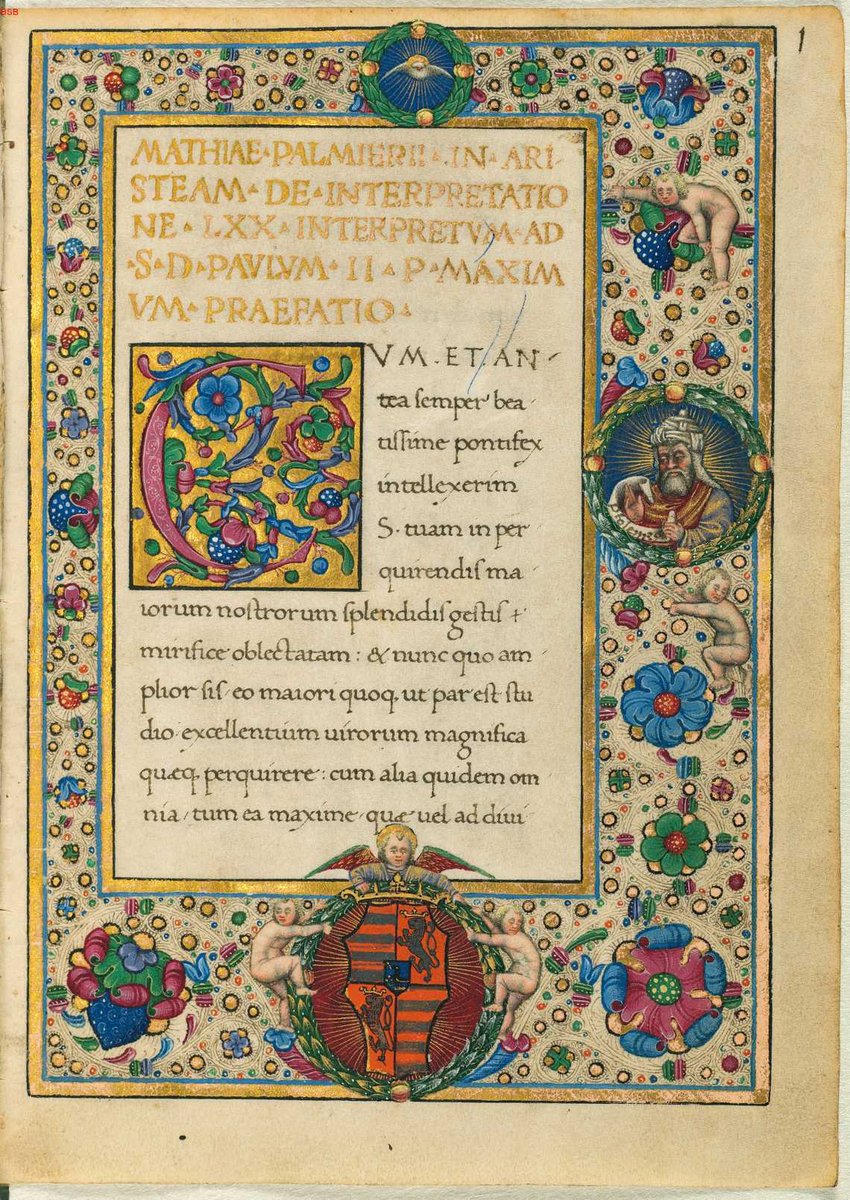 BSB
1
MATHIAE · PALMIERII · IN · ARI-
STEAM · DE · INTERPRETATIO
NE · LXX · INTERPRETVM · AD
· S · D · PAVLVM · II · P · MAXIM
VM · PRAEFATIO ·
CVM · ET · AN-
tea semper bea-
tissime pontifex
intellexerim
S. tuam in per-
quirendis ma-
iorum nostrorum splendidis gestis +
mirifice oblectatam: & nunc quo am
plior sis eo maiori quoq. ut par est stu
dio excellentium uirorum magnifica
quæq. perquirere: cum alia quidem om
nia, tum ea maxime, quæ uel ad diui